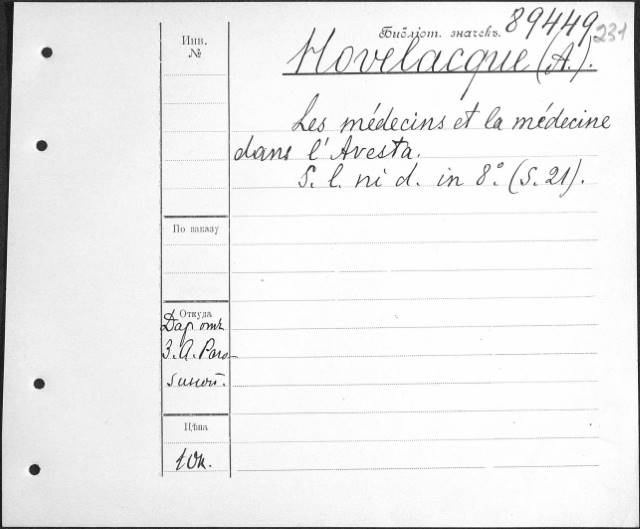 Библіот. значекъ.
89449
231
Инв.
№
Hovelacque (A.).
Les médecins et la médecine
dans l'Avesta.
S. l. ni d. in 8°. (S. 21).
По заказу
Откуда
Дар отъ
З. А. Раго-
Цѣна
10к.